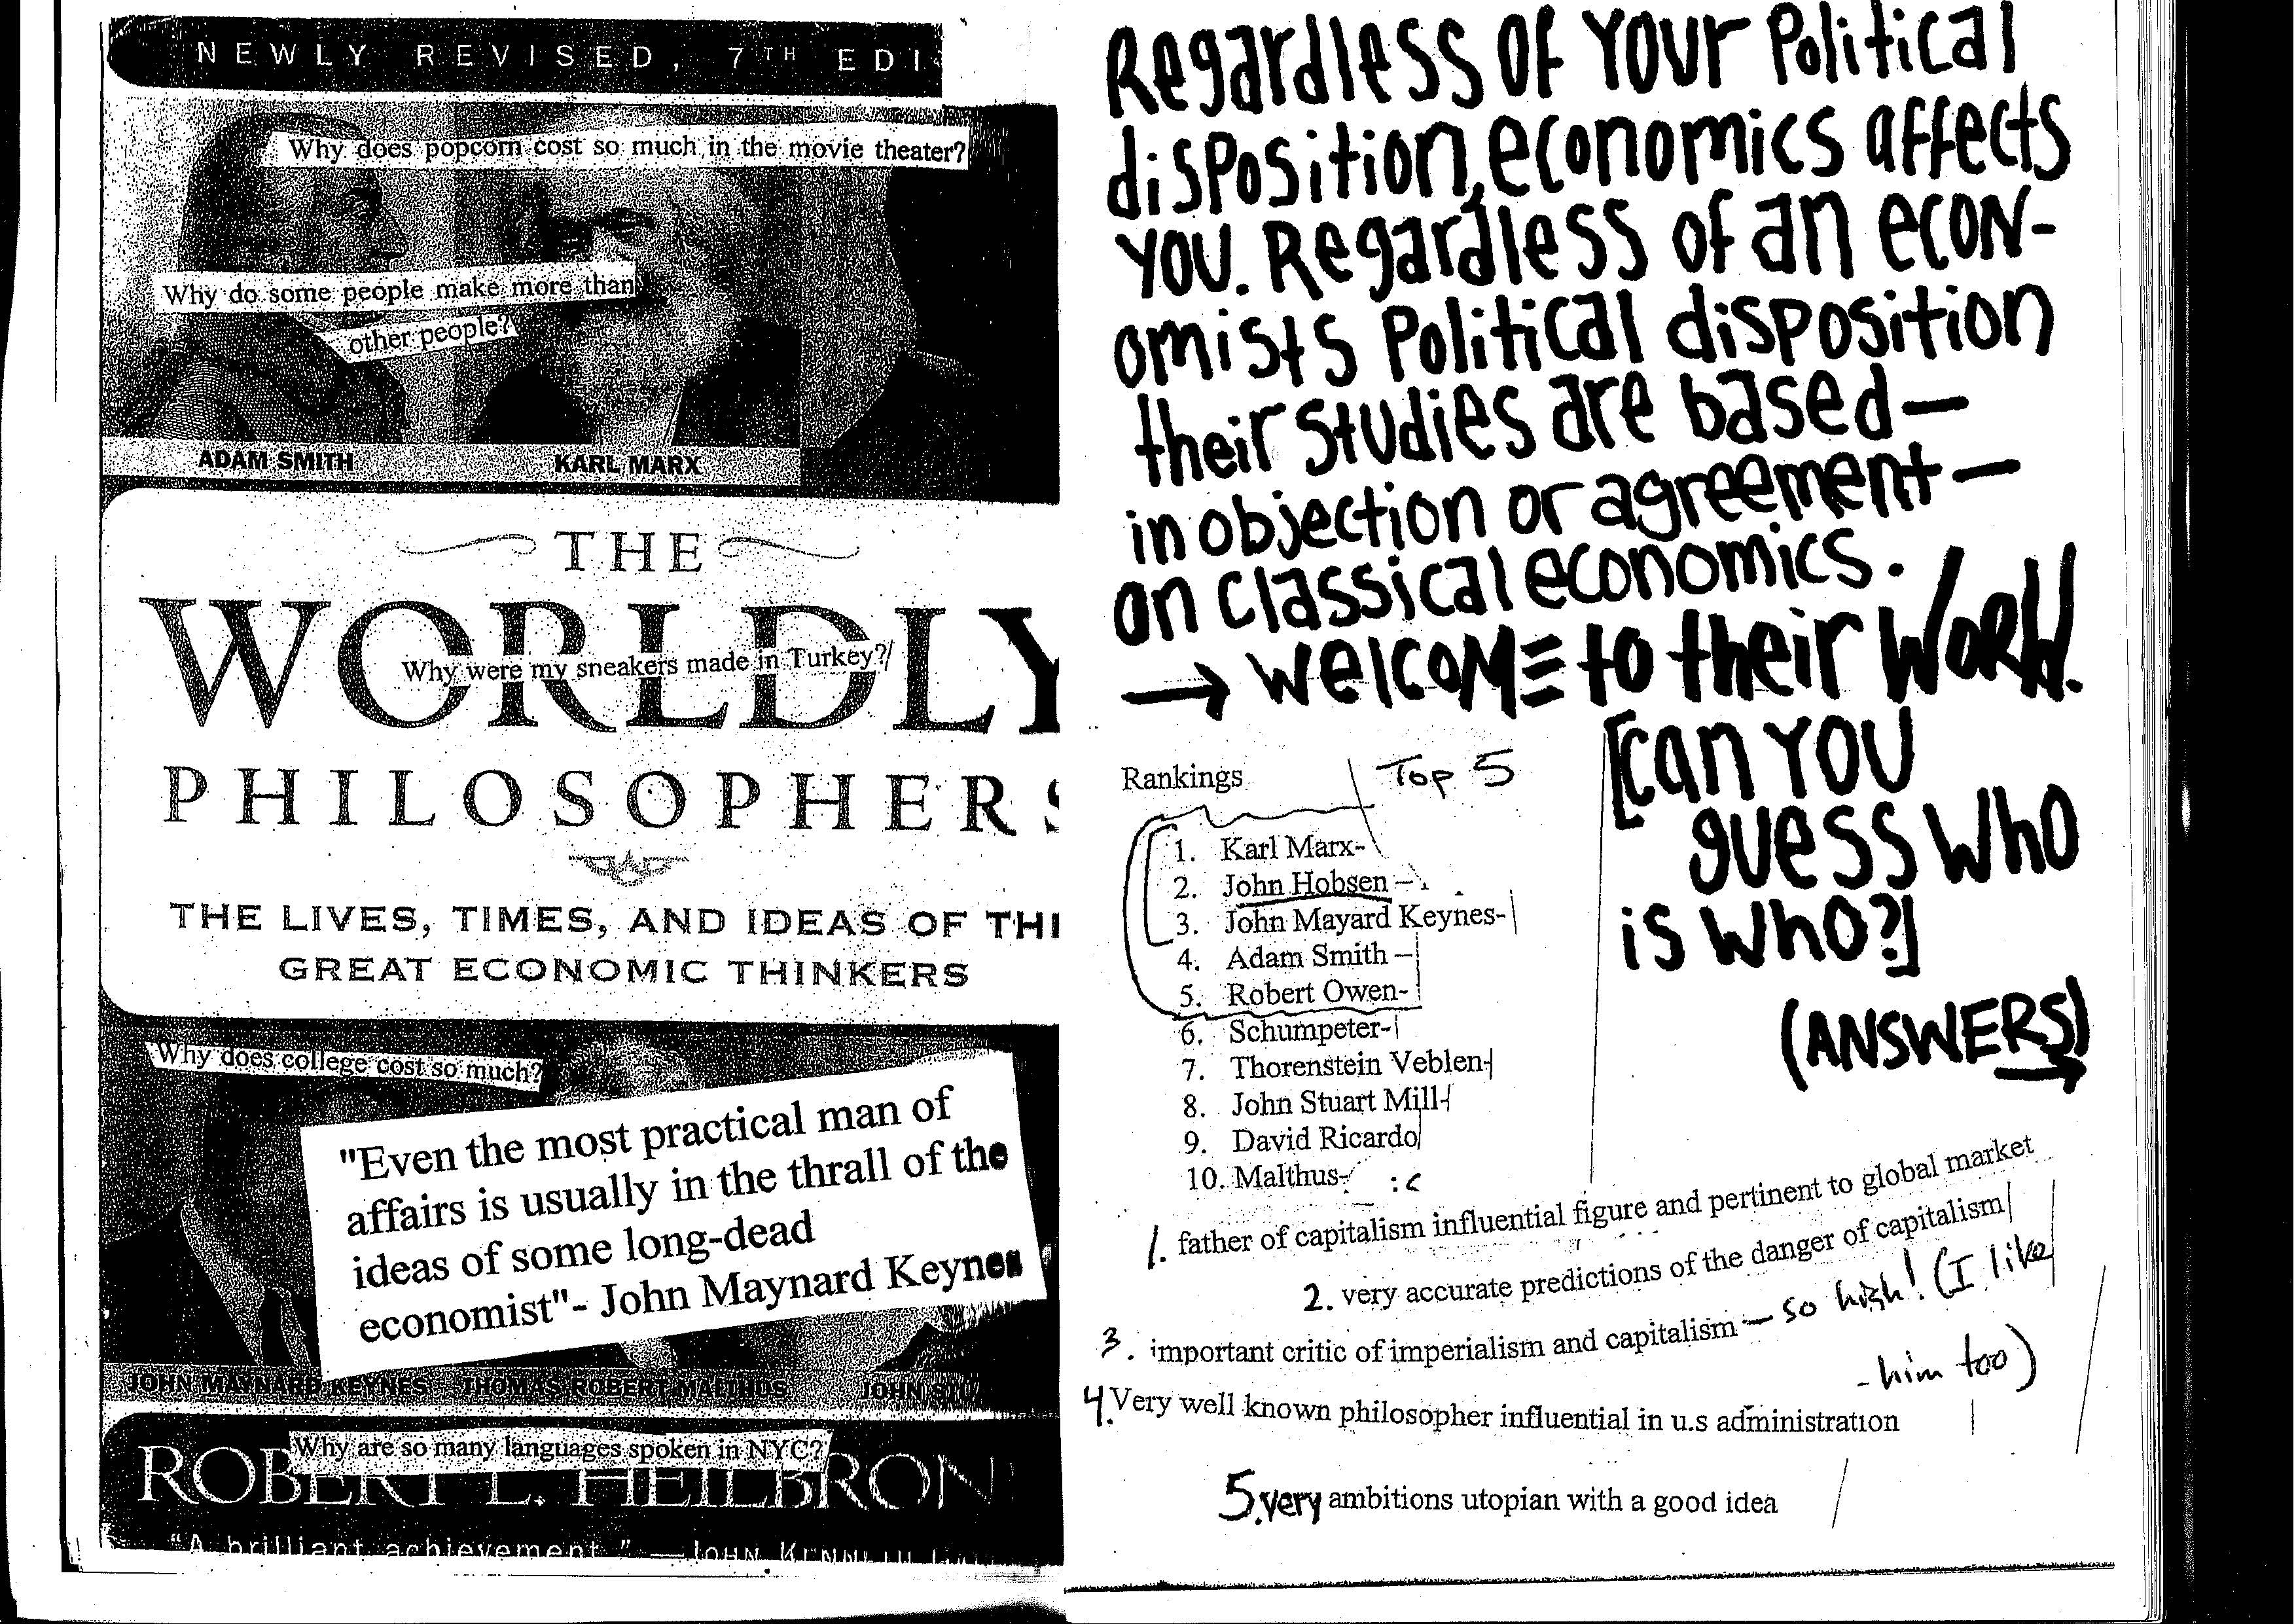 NEWLY REVISED, 7TH EDI
Why does popcorn cost so much in the movie theater?
Why do some people make more than
other people?
ADAM SMITH
KARL MARX
THE
WORLDLY
Why were my sneakers made in Turkey?
PHILOSOPHERS
THE LIVES, TIMES, AND IDEAS OF THE
GREAT ECONOMIC THINKERS
Why does college cost so much?
"Even the most practical man of
affairs is usually in the thrall of the
ideas of some long-dead
economist"- John Maynard Keynes
JOHN MAYNARD KEYNES
THOMAS ROBERT MALTHUS
JOHN STUA
Why are so many languages spoken in NYC?
ROBERT L. HEILBRON
"A brilliant achievement." —JOHN KENNETH
Regardless of Your Political
disposition, economics affects
you. Regardless of an econ-
omists Political disposition
their studies are based—
in objection or agreement—
on classical economics.
→ welcome to their World.
[Can you
guess who
is who?]
(ANSWERS)
Rankings
Top 5
1. Karl Marx-
2. John Hobsen -
3. John Mayard Keynes-
4. Adam Smith -
5. Robert Owen-
6. Schumpeter-
7. Thorenstein Veblen-
8. John Stuart Mill-
9. David Ricardo
10. Malthus- :c
1. father of capitalism influential figure and pertinent to global market
2. very accurate predictions of the danger of capitalism
3. important critic of imperialism and capitalism — so high! (I like
- him too)
4. Very well known philosopher influential in u.s administration
5. very ambitions utopian with a good idea